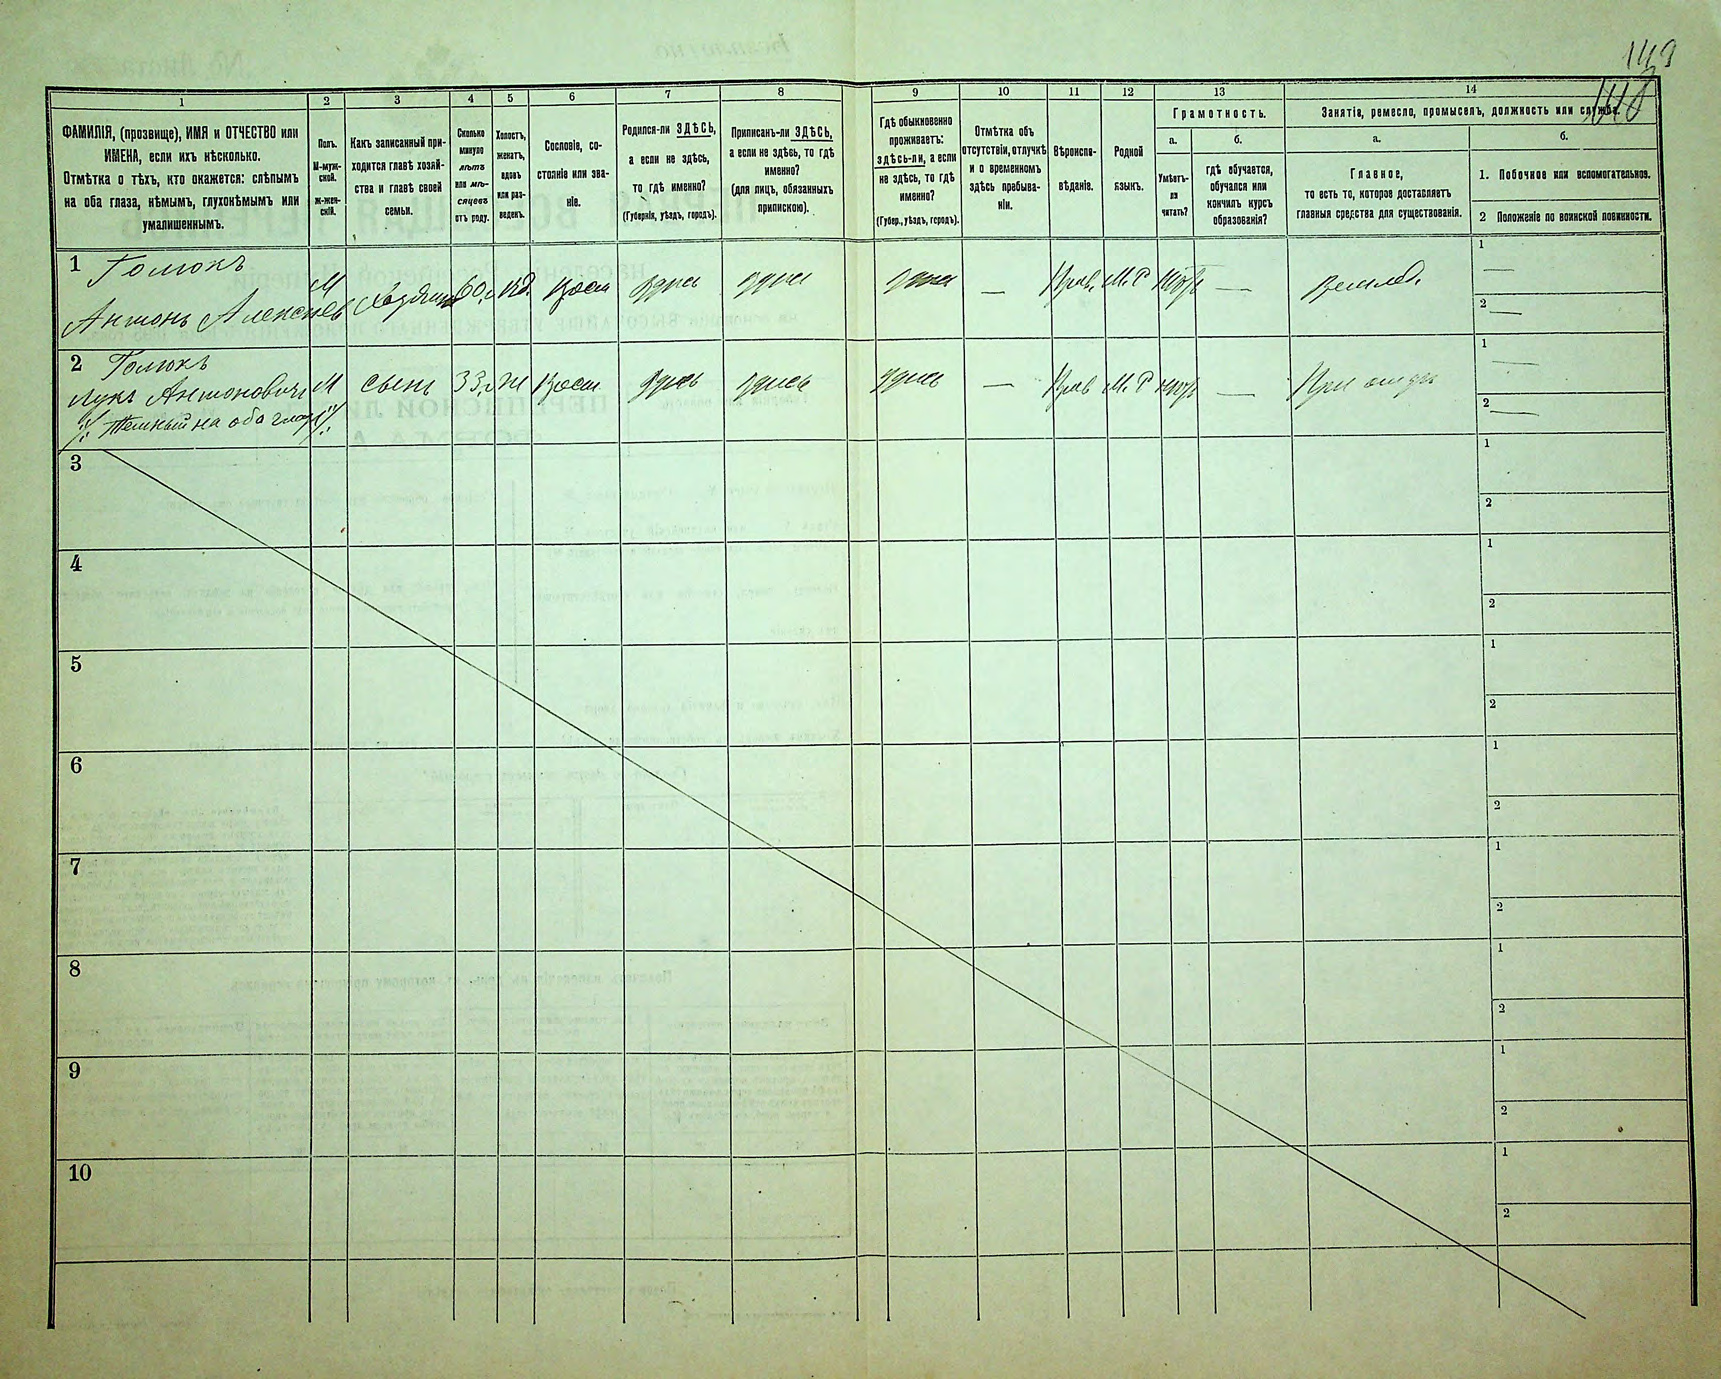 149
148
1 2 3 4 5 6 7 8 9 10 11 12 13 14
ФАМИЛІЯ, (прозвище), ИМЯ и ОТЧЕСТВО или
ИМЕНА, если ихъ нѣсколько.
Отмѣтка о тѣхъ, кто окажется: слѣпымъ
на оба глаза, нѣмымъ, глухонѣмымъ или
умалишеннымъ.
Полъ.
М-муж-
ской.
ж-жен-
скій.
Какъ записанный при-
ходится главѣ хозяй-
ства и главѣ своей
семьи.
Сколько
минуло
лѣтъ
или мѣ-
сяцевъ
отъ роду.
Холостъ,
женатъ,
вдовъ
или раз-
веденъ.
Сословіе, со-
стояніе или зва-
ніе.
Родился-ли ЗДѢСЬ,
а если не здѣсь,
то гдѣ именно?
(Губернія, уѣздъ, городъ).
Приписанъ-ли ЗДѢСЬ,
а если не здѣсь, то гдѣ
именно?
(для лицъ, обязанныхъ
припискою).
Гдѣ обыкновенно
проживаетъ:
здѣсь-ли, а если
не здѣсь, то гдѣ
именно?
(Губер., уѣздъ, городъ).
Отмѣтка объ
отсутствіи, отлучкѣ
и о временномъ
здѣсь пребыва-
ніи.
Вѣроиспо-
вѣданіе.
Родной
языкъ.
Грамотность.
а.
Умѣетъ-
ли
читать?
б.
гдѣ обучается,
обучался или
кончилъ курсъ
образованія?
Занятія, ремесло, промыселъ, должность или служба.
а.
Главное,
то есть то, которое доставляетъ
главныя средства для существованія.
б.
1. Побочное или вспомогательное.
2 Положеніе по воинской повинности.
1 Голюкъ
Антонъ Алексѣев М Хозяинъ 60 л. вд. Крест здѣсь здѣсь здѣсь — Прав. М. Р нѣтъ — Землед. 1 — 2 —
2 Голюкъ
Лука Антонович М сынъ 33 л. Крест здѣсь здѣсь здѣсь — Прав М. Р нѣтъ — При отцѣ 1 — 2 —
Темный на оба глаза
3 1 2
4 1 2
5 1 2
6 1 2
7 1 2
8 1 2
9 1 2
10 1 2